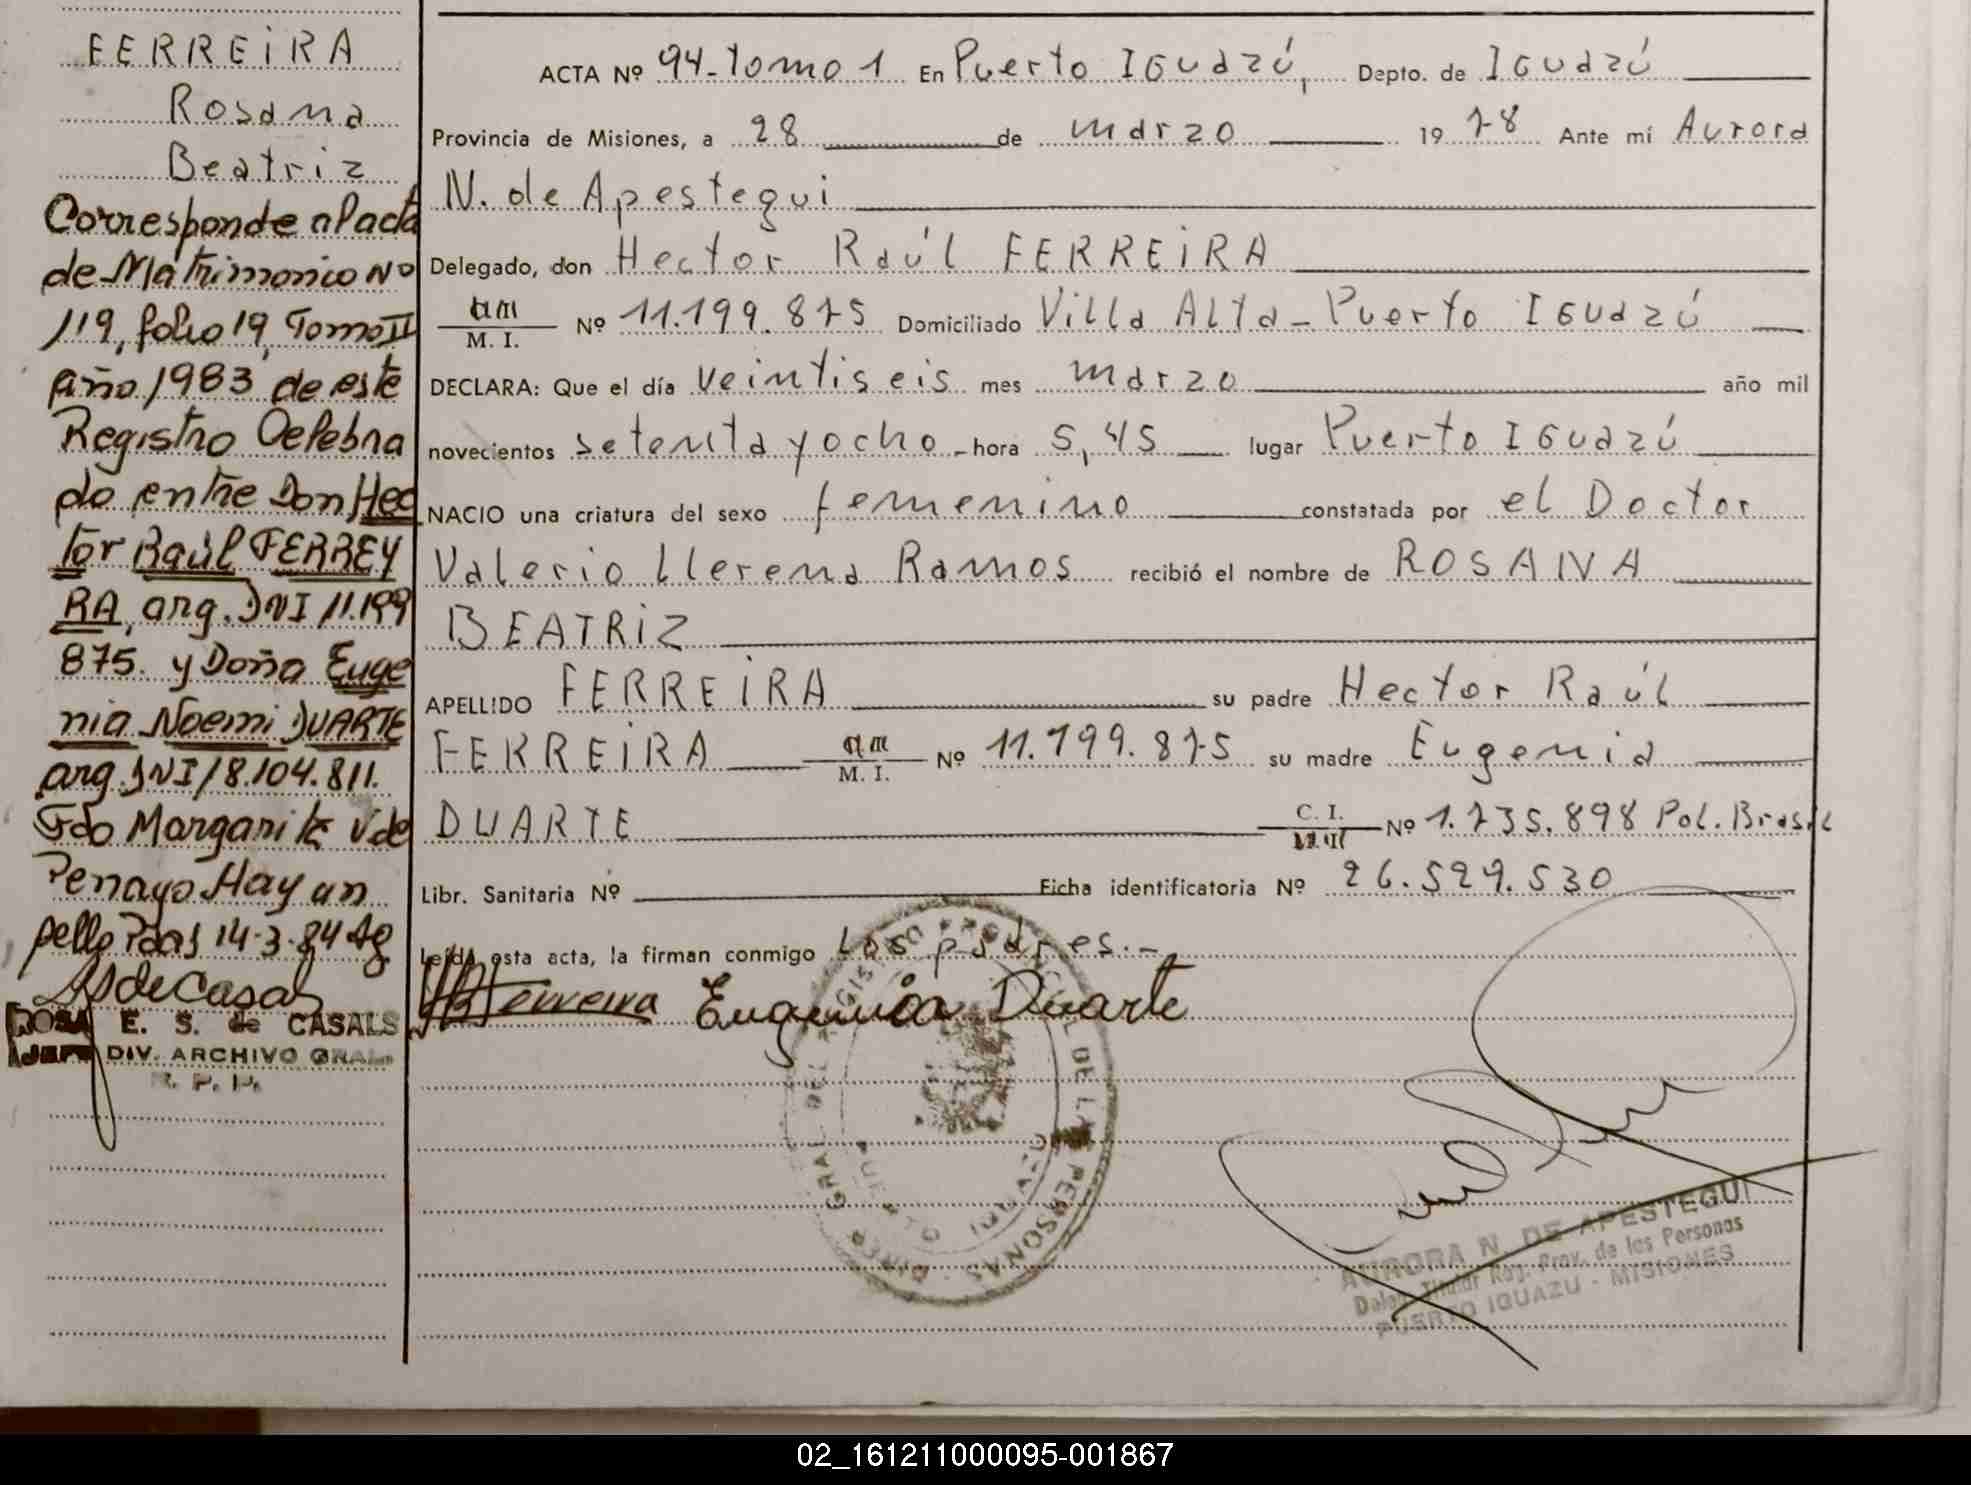 FERREIRA
Rosana
Beatriz
Corresponde al acta
de Matrimonio Nº
119, folio 19, Tomo II
año 1983 de este
Registro Celebra
do entre Don Hec
tor Raúl FERREY
RA, arg. DNI 11.199
875. y Doña Euge
nia Noemi DUARTE
arg. DNI 18.104.811.
Fdo Margarita V de
Penayo Hay un
sello Pdas 14-3-84 Ag
ROSA E. S. de CASALS
JEFE DIV. ARCHIVO GRAL.
R. P. P.
ACTA Nº 94-Tomo 1 En Puerto IGuazú, Depto. de IGuazú
Provincia de Misiones, a 28 de marzo 1978 Ante mí Aurora
N. de Apestegui
Delegado, don Hector Raúl FERREIRA
M. I. Nº 11.199.875 Domiciliado Villa Alta-Puerto IGuazú
DECLARA: Que el día veintiseis mes marzo año mil
novecientos setenta y ocho - hora 5,45 lugar Puerto IGuazú
NACIO una criatura del sexo femenino constatada por el Doctor
Valerio Llerena Ramos recibió el nombre de ROSANA
BEATRIZ
APELLIDO FERREIRA su padre Hector Raúl
FERREIRA M. I. Nº 11.199.875 su madre Eugenia
DUARTE C. I. Nº 1.735.898 Pol. Brasil
Libr. Sanitaria Nº Ficha identificatoria Nº 26.529.530
Leída esta acta, la firman conmigo los padres.-
HRFerreira Eugenia Duarte
AURORA N. DE APESTEGUI
Deleg. Titular Reg. Prov. de las Personas
PUERTO IGUAZU - MISIONES
02_161211000095-001867